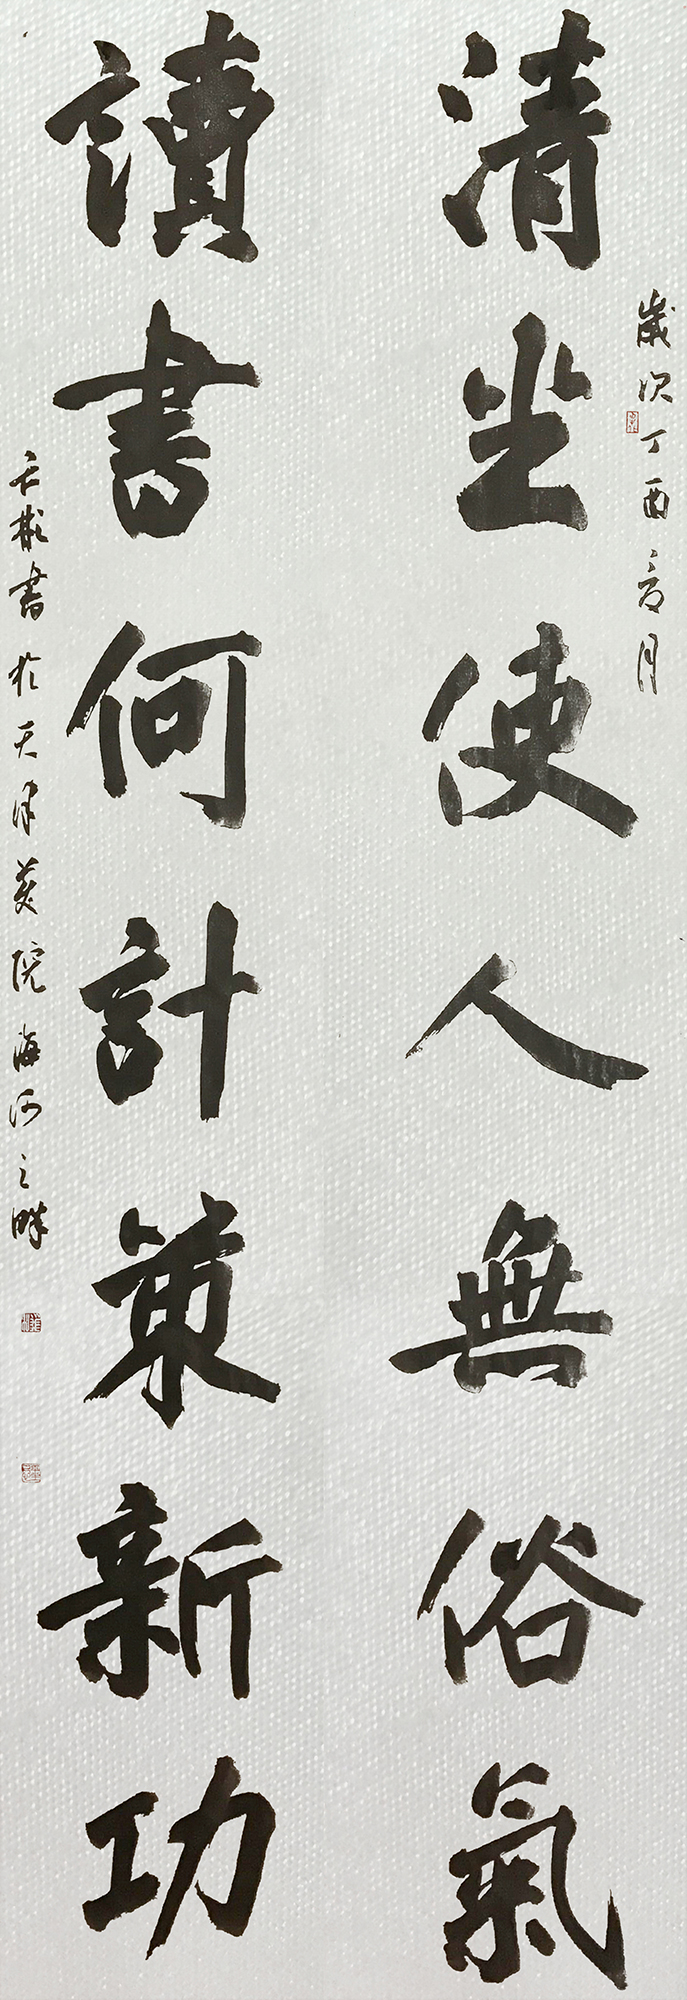 清坐使人無俗氣
歲次丁酉
月
讀書何計策新功
書於天津美院海河之畔